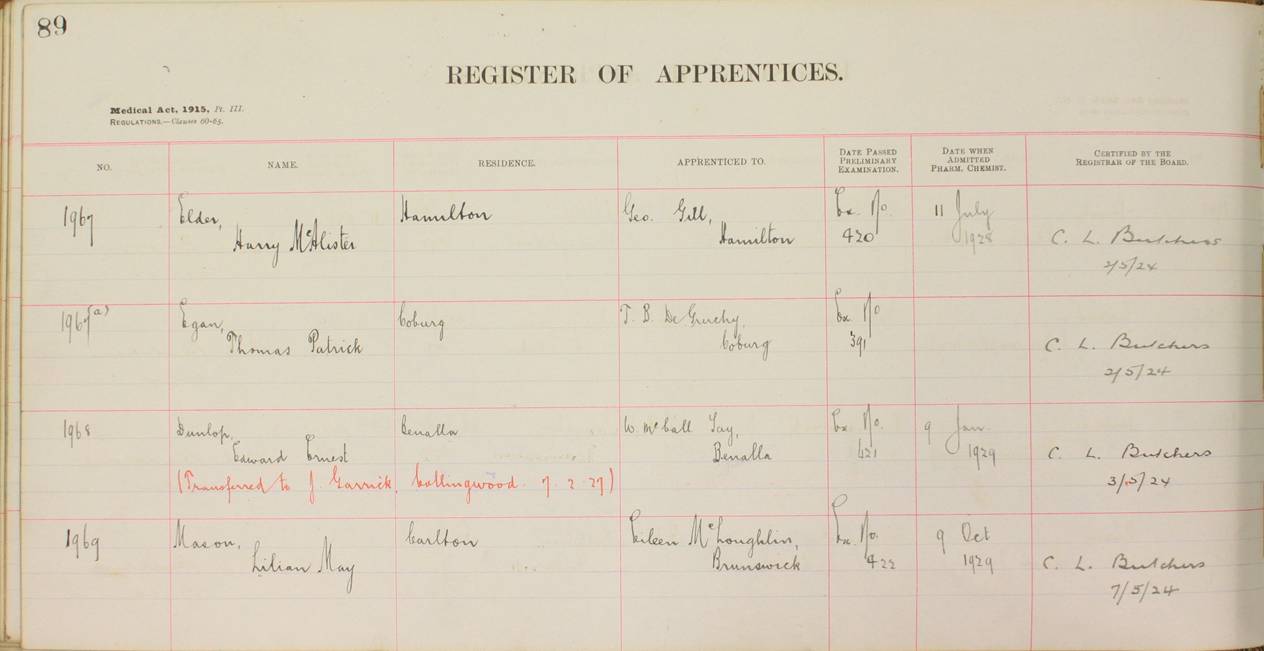 89
REGISTER OF APPRENTICES.
Medical Act, 1915, Pt. III.
REGULATIONS.—Clauses 60-65.
NO. NAME. RESIDENCE. APPRENTICED TO. DATE PASSED PRELIMINARY EXAMINATION. DATE WHEN ADMITTED PHARM. CHEMIST. CERTIFIED BY THE REGISTRAR OF THE BOARD.
1967 Elder, Hamilton Geo. Gill, Ex. No. 11 July
Harry McAlister Hamilton 420 1928 C. L. Butchers
2/5/24
1967(a) Egan, Coburg T. B. De Gruchy, Ex. No
Thomas Patrick Coburg 391 C. L. Butchers
2/5/24
1968 Dunlop, Benalla W. McCall Say, Ex. No. 9 Jan.
Edward Ernest Benalla 421 1929 C. L. Butchers
(Transferred to J. Garrick, Collingwood. 7. 2. 27) 3/5/24
1969 Mason, Carlton Eileen McLoughlin, Ex. No. 9 Oct
Lilian May Brunswick 422 1929 C. L. Butchers
7/5/24